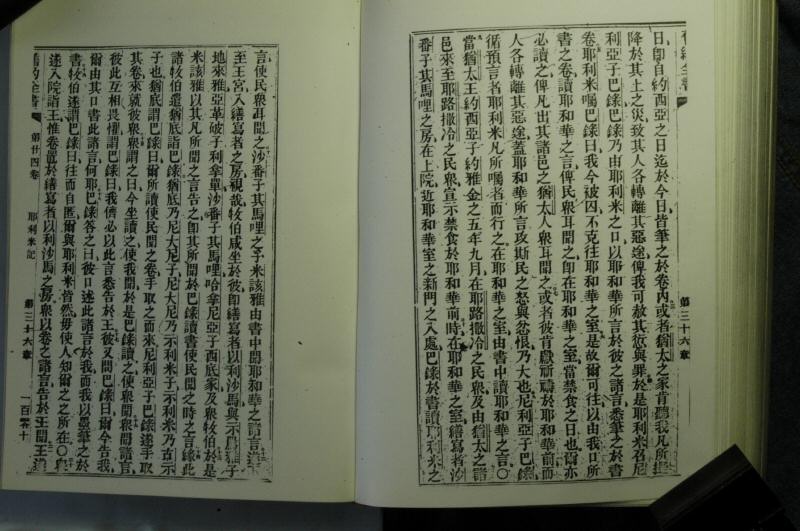 第三十六章
日卽自約西亞之日迄於今日皆筆之於卷內或者猶太之家肯聽我凡所擬
降於其上之災致其人各轉離其惡途俾我可赦其愆與罪於是耶利米召尼
利亞子巴錄巴錄乃由耶利米之口以耶和華所言於彼之諸言悉筆之於書
卷耶利米囑巴錄曰我今被囚不克往耶和華之室是故爾可往以由我口所
書之卷讀耶和華之言俾民衆耳聞之卽在耶和華之室當禁食之日也爾亦
必讀之俾凡出其諸邑之猶太人衆耳聞之或者彼肯獻祈禱於耶和華前而
人各轉離其惡途蓋耶和華所言攻斯民之怒與忿恨乃大也尼利亞子巴錄
循預言者耶利米凡所囑者而行之在耶和華之室由書中讀耶和華之言○
當猶太王約西亞子約雅金之五年九月在耶路撒冷之民衆及由猶太之諸
邑來至耶路撒冷之民衆宣示禁食於耶和華前時在耶和華之室繕寫者沙
番子其馬哩之房在上院近耶和華室之新門之入處巴錄於書讀耶利米之
言使民衆耳聞之沙番子其馬哩之子米該雅由書中聞耶和華之諸言
至王宮入繕寫者之房視哉牧伯咸坐於彼卽繕寫者以利沙馬與示馬雅子
地來雅亞革破子利拿單沙番子其馬哩哈拿尼亞子西底家及衆牧伯於是
米該雅以其凡所聞之言告之卽其所聞於巴錄讀書使民聞之時之言緣此
諸牧伯遣猶底詣巴錄猶底乃尼大尼子尼大尼乃示利米子示利米乃古示
子也猶底謂巴錄曰爾所讀使民聞之卷手取之而來尼利亞子巴錄遂手取
其卷來就彼衆衆謂之曰今坐讀之使我聞於是巴錄讀之使衆聞衆聞諸言
彼此互相畏懼謂巴錄曰我儕必以此言悉告於王彼又問巴錄曰爾今告我
爾由其口書此諸言何耶巴錄答之曰彼口述此諸言於我而我以墨筆之於
書牧伯遂謂巴錄曰往而自匿爾與耶利米皆然毋使人知爾之之所在○衆
遂入院詣王惟卷置於繕寫者以利沙馬之房衆以卷之諸言告於王聞王
第廿四卷 耶利米記 第三十六章 一百零十